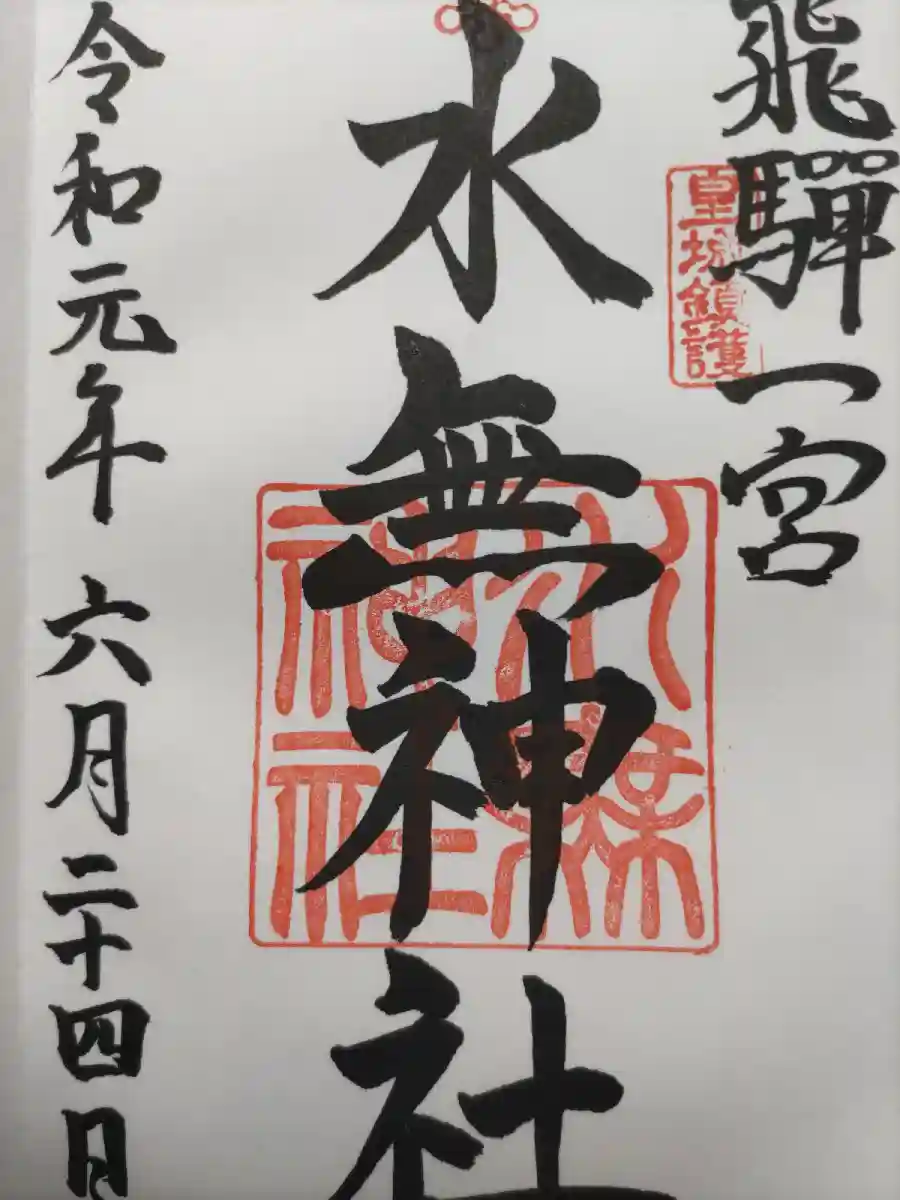 飛驒一宮
皇城鎮護
水無神社
水無神社
令和元年六月二十四日